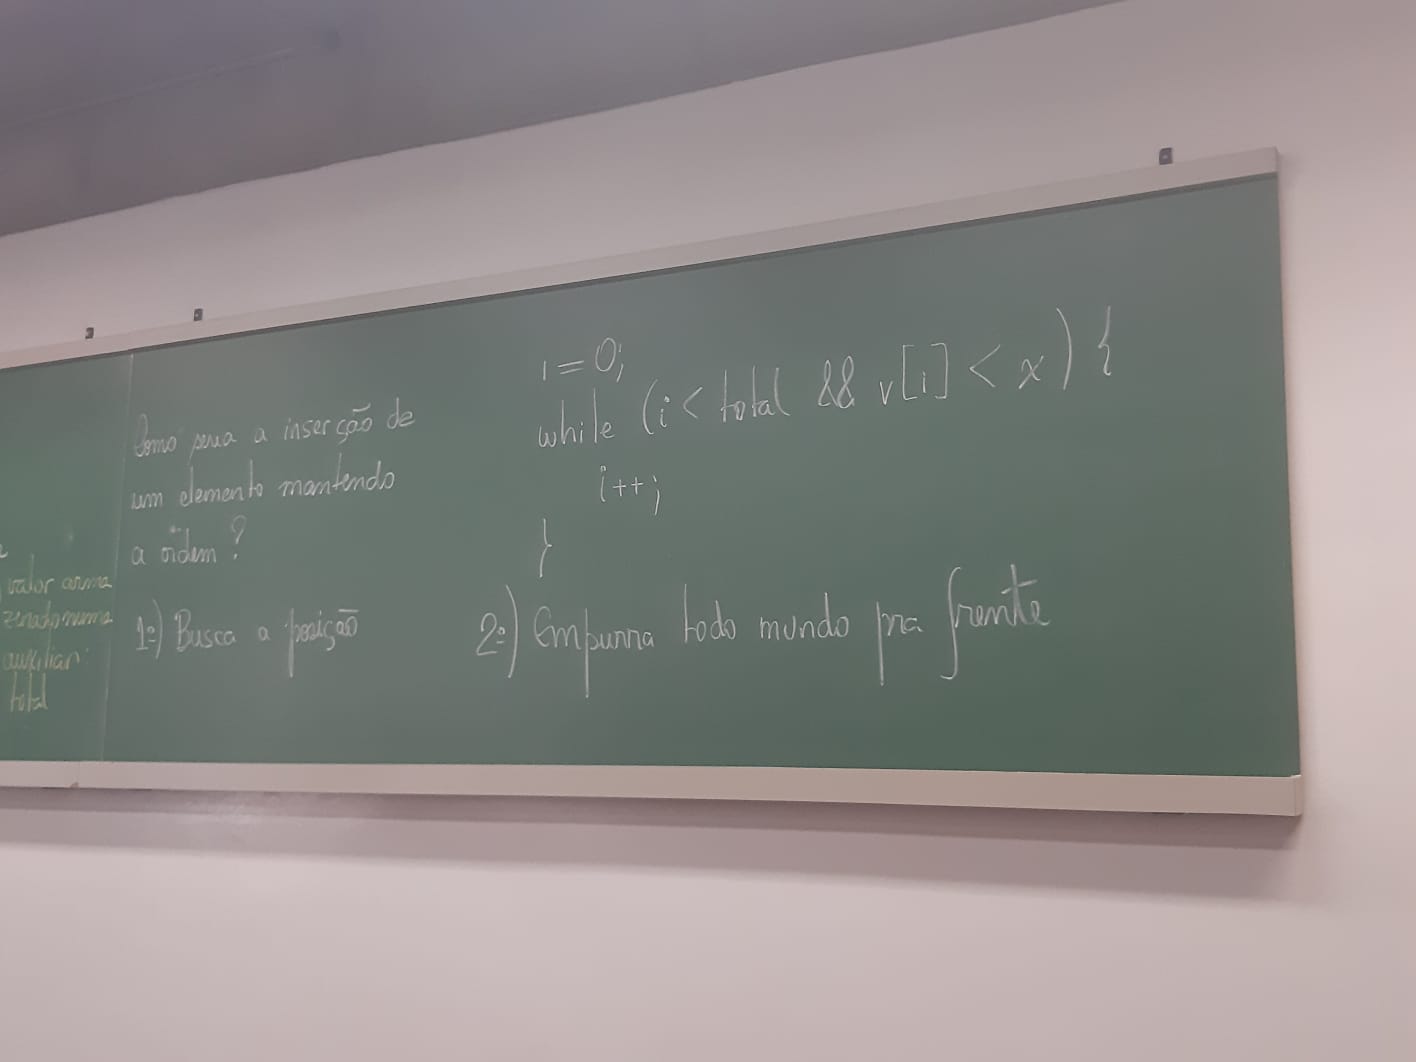 valor arma
zenado numa
auxiliar:
total
Como seria a inserção de
um elemento mantendo
a ordem?
1º) Busca a posição
i = 0;
while (i < total && v[i] < x) {
i++;
}
2º) Empurra todo mundo pra frente